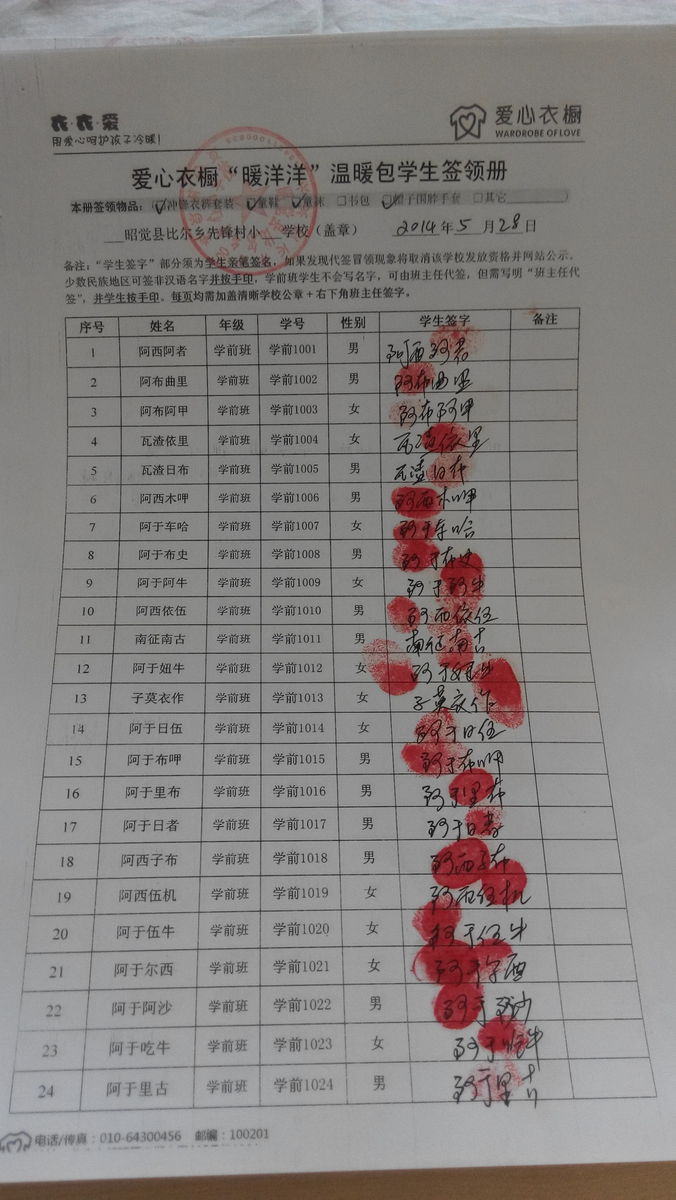 衣·衣·爱
用爱心呵护孩子冷暖!
爱心衣橱
WARDROBE OF LOVE
爱心衣橱“暖洋洋”温暖包学生签领册
本册签领物品:(☑冲锋衣裤套装 ☑童鞋 ☑童袜 □书包 ☑帽子围脖手套 □其它
昭觉县比尔乡先锋村小 学校(盖章) 2014年5月28日
备注:“学生签字”部分须为学生亲笔签名,如果发现代签冒领现象将取消该学校发放资格并网站公示。
少数民族地区可签非汉语名字并按手印,学前班学生不会写名字,可由班主任代签,但需写明“班主任代
签”,并学生按手印。每页均需加盖清晰学校公章+右下角班主任签字。
序号 姓名 年级 学号 性别 学生签字 备注
1 阿西阿者 学前班 学前1001 男 阿西阿者
2 阿布曲里 学前班 学前1002 男 阿布曲里
3 阿布阿甲 学前班 学前1003 女 阿布阿甲
4 瓦渣依里 学前班 学前1004 女 瓦渣依里
5 瓦渣日布 学前班 学前1005 男 瓦渣日布
6 阿西木呷 学前班 学前1006 男 阿西木呷
7 阿于车哈 学前班 学前1007 女 阿于车哈
8 阿于布史 学前班 学前1008 男 阿于布史
9 阿于阿牛 学前班 学前1009 女 阿于阿牛
10 阿西依伍 学前班 学前1010 男 阿西依伍
11 南征南古 学前班 学前1011 男 南征南古
12 阿于妞牛 学前班 学前1012 女 阿于妞牛
13 子莫衣作 学前班 学前1013 女 子莫衣作
14 阿于日伍 学前班 学前1014 女 阿于日伍
15 阿于布呷 学前班 学前1015 男 阿于布呷
16 阿于里布 学前班 学前1016 男 阿于里布
17 阿于日者 学前班 学前1017 男 阿于日者
18 阿西子布 学前班 学前1018 男 阿西子布
19 阿西伍机 学前班 学前1019 女 阿西伍机
20 阿于伍牛 学前班 学前1020 女 阿于伍牛
21 阿于尔西 学前班 学前1021 女 阿于尔西
22 阿于阿沙 学前班 学前1022 男 阿于阿沙
23 阿于吃牛 学前班 学前1023 女 阿于吃牛
24 阿于里古 学前班 学前1024 男 阿于里古
电话/传真:010-64300456 邮编:100201